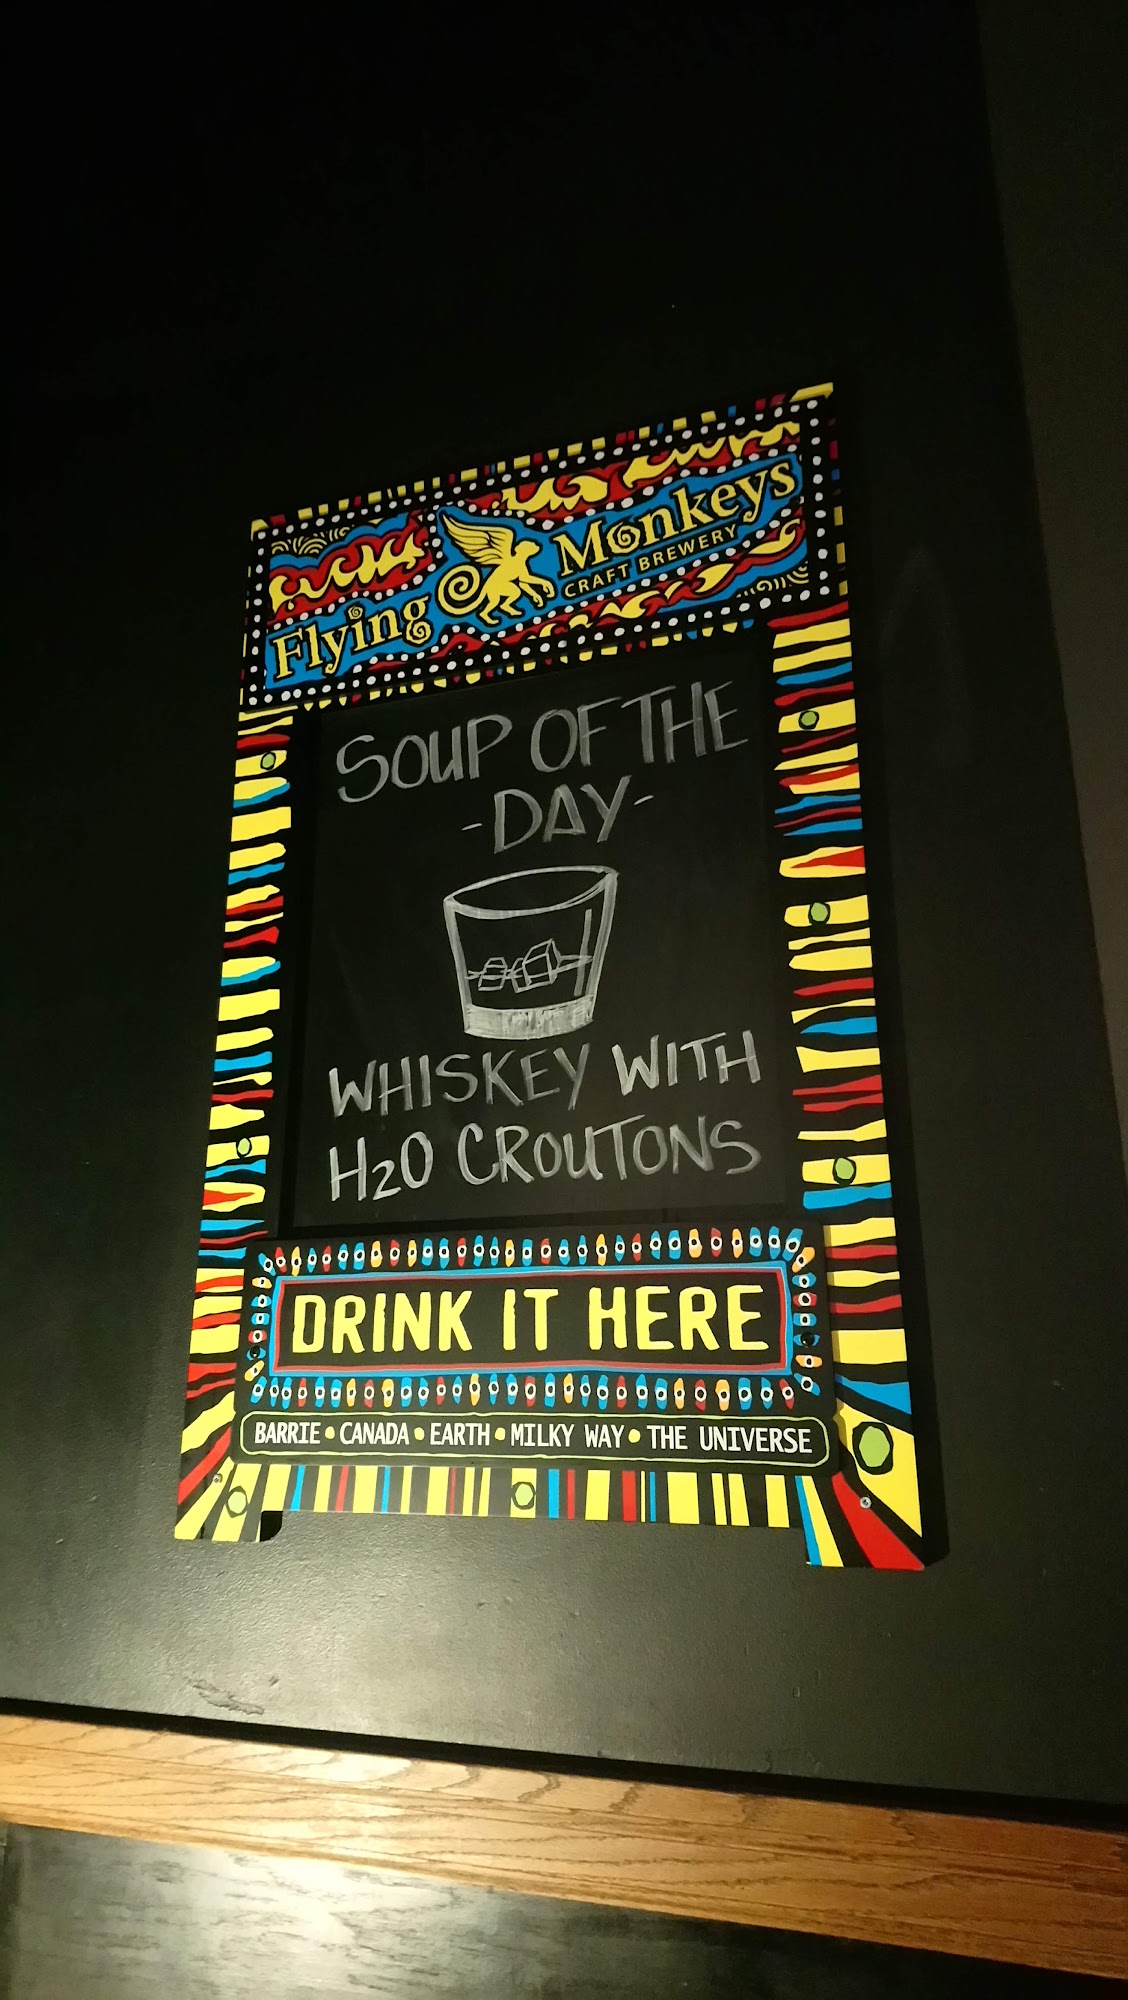 Flying Monkeys
CRAFT BREWERY
SOUP OF THE
-DAY-
WHISKEY WITH
H2O CROUTONS
DRINK IT HERE
BARRIE • CANADA • EARTH • MILKY WAY • THE UNIVERSE